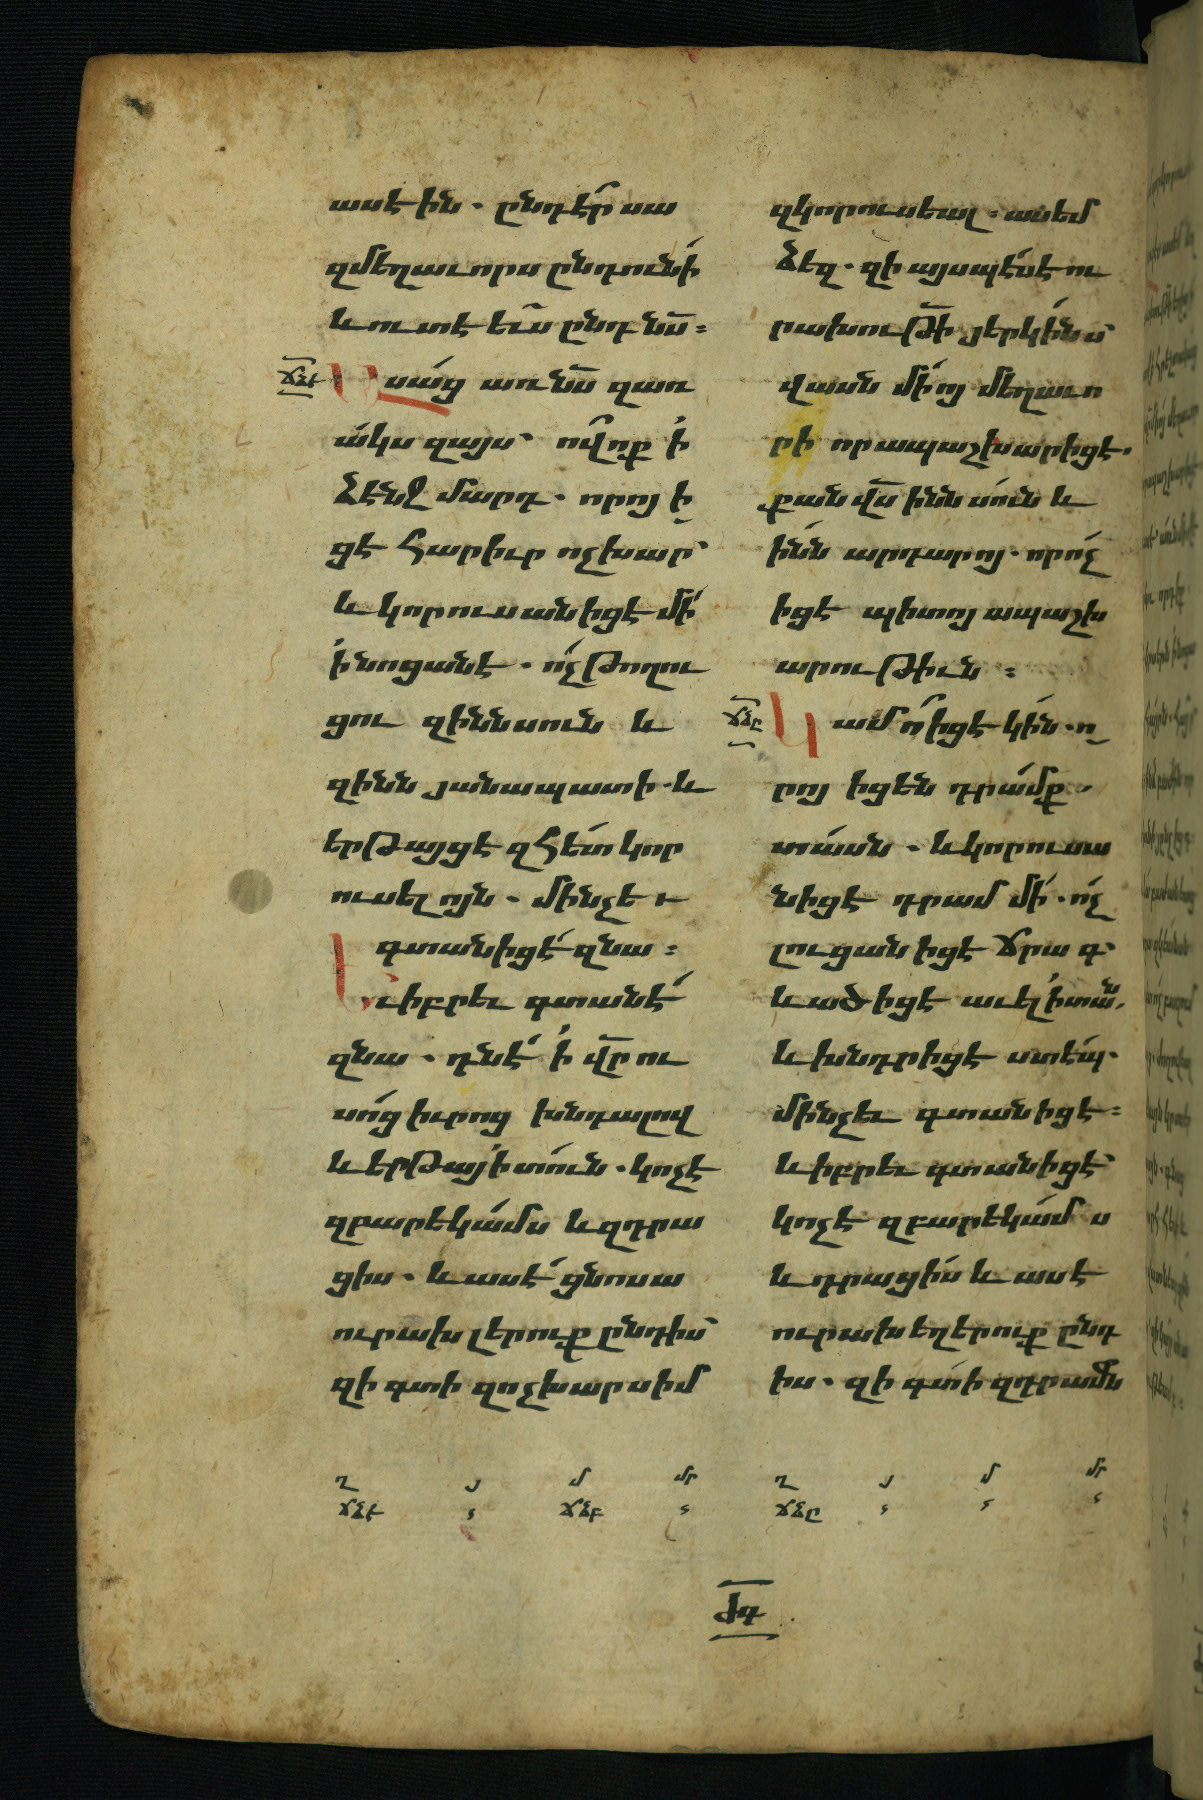 ասէին. ընդէ՞ր սա
զմեղաւորս ընդունի՛
և ուտէ ևս ընդ նս։
ՃՁԷ Ասա՛ց առ նս զառ
ա՛կս զայս՝ ո՞վ ոք ՛ի
ձէնջ մարդ. որոյ ի
ցէ հարիւր ոչխար՝
և կորուսանիցէ մի՛
՛ի նոցանէ. ո՛չ թողու
ցու զիննսուն և
զինն յանապատի. և
երթայցէ զհե՛տ կոր
ուսելոյն. մինչև
գտանիցէ՛ զնա։
Եւ իբրև գտանէ՛
զնա. դնէ՛ ՛ի վր ու
սո՛ց իւրոց խնդալով
և երթայ ՛ի տո՛ւն. կոչէ
զբարեկա՛մս և զդրա
ցիս. և ասէ՛ ցնոսա
ուրախ լերուք ընդ իս՝
զի գտի զոչխարս իմ
զկորուսեալ։ ասեմ
ձեզ. զի այսպէ՛ս է ու
րախութի յերկի՛նս՝
վասն մի՛ոյ մեղաւո
րի որ ապաշխարիցէ.
քան վս իննսո՛ւն և
ի՛նն արդարոյ. որո՛ց
իցէ պիտոյ ապաշխ
արութիւն։
ՃՁԸ Կամ ո՞ իցէ կին. ո
րոյ իցեն դրա՛մք
տա՛սն. և կորուսա
նիցէ դրամ մի՛. ո՛չ
լուցանիցէ ճրագ՝
և ածիցէ աւել ՛ի տան,
և խնդրիցէ ստէպ.
մինչև գտանիցէ։
և իբրև գտանիցէ՝
կոչէ զբարեկա՛մս
և դրացի՛ս և ասէ
ուրախ եղերուք ընդ
իս. զի գտ՛ի զդրամն
Ղ Յ Մ ՄՐ Ղ Յ Մ ՄՐ
ՃՁԷ ՃՁԲ ՃՁԸ
ԺԳ